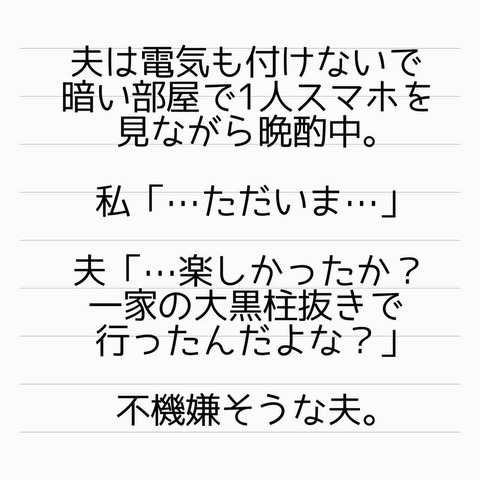 夫は電気も付けないで
暗い部屋で1人スマホを
見ながら晩酌中。
私「…ただいま…」
夫「…楽しかったか？
一家の大黒柱抜きで
行ったんだよな？」
不機嫌そうな夫。